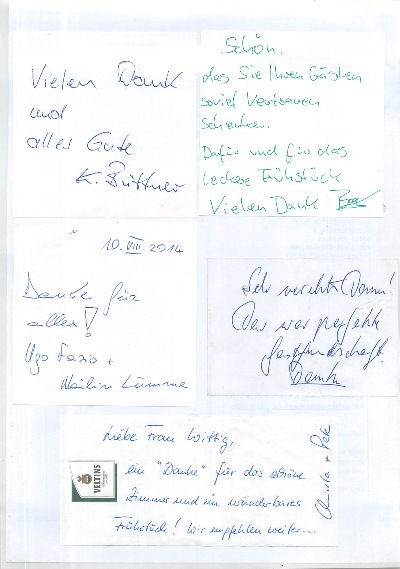 Vielen Dank
und
alles Gute
K. Büttner
Schön,
das Sie Ihren Gästen
soviel Vertrauen
schenken.
Dafür und für das
leckere Frühstück
Vielen Dank
10. VIII. 2014
Danke für
alles!
Ugo Fazio +
Sehr verehrte Dame!
Das war perfekte
Gastfreundschaft.
Danke
Liebe Frau Wittig,
ein "Danke" für das schöne
Zimmer und ein wunderbares
Frühstück! Wir empfehlen weiter...
VELTINS